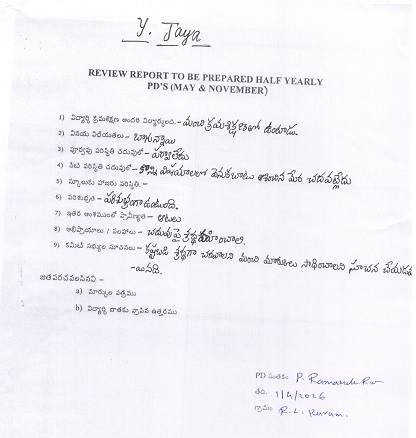 Y. Jaya
REVIEW REPORT TO BE PREPARED HALF YEARLY
PD'S (MAY & NOVEMBER)
1) విద్యార్థి క్రమశిక్షణ అందరి విద్యార్థులది.- మంచి క్రమశిక్షణతో ఉంటాడు.
2) వినయ విధేయతలు - బాగున్నాయి
3) పూర్వపు పరిస్థితి చదువులో - పర్వాలేదు
4) నేటి పరిస్థితి చదువులో - కొన్ని విషయాలలో వెనుకబాటు ఆశించిన మేర చదవట్లేదు
5) స్కూలుకు హాజరు పరిస్థితి. -
6) పరిశుభ్రత - పరిశుభ్రంగా ఉంటుంది.
7) ఇతర అంశములలో ప్రావీణ్యత - ఆటలు
8) అభిప్రాయాలు / సలహాలు - చదువుపై శ్రద్ధ వహించాలి.
9) కమిటీ సభ్యుల సూచనలు - కష్టపడి శ్రద్ధగా చదవాలని మంచి మార్కులు సాధించాలని సూచన చేయడమ
-యినది.
జతపరచవలసినవి -
a) మార్కుల పత్రము
b) విద్యార్థి దాతకు వ్రాసిన ఉత్తరము
PD సంతకం P.
తేది: 1/4/2026
గ్రామం: R.L. Puram.